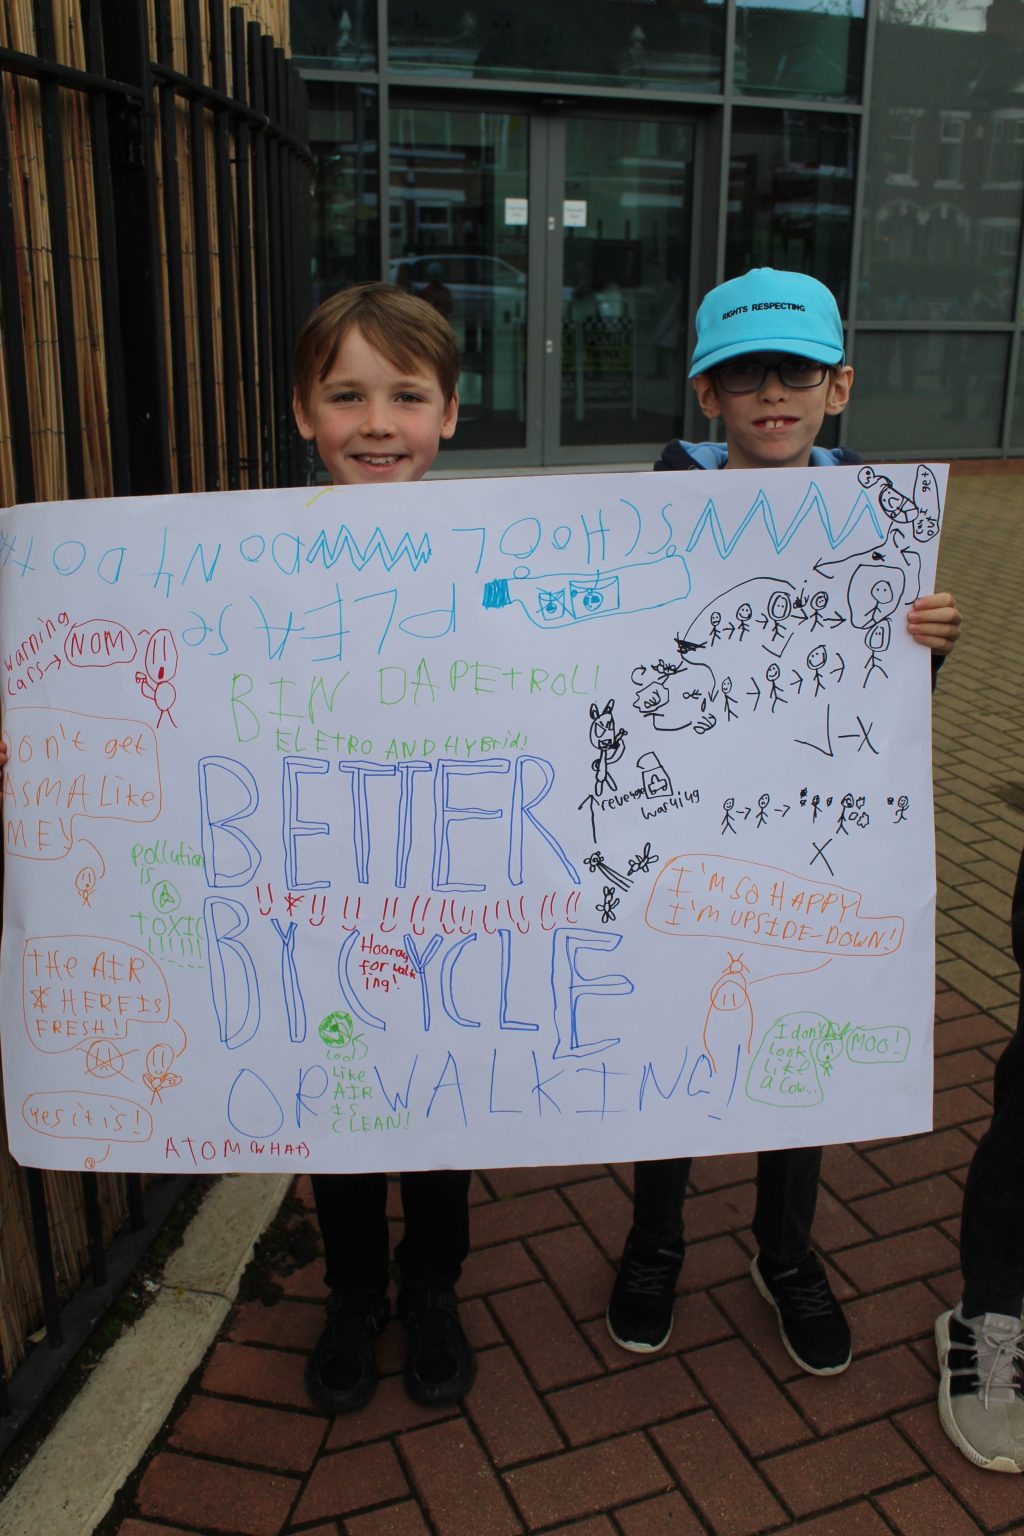 RIGHTS RESPECTING
POLITE
THINK!
can I
get
out
SCHOOL
DON'T DO
PLEASE
warning
cars
NOM
BIN DA PETROL!
ELETRO AND HYBrid!
Don't get
ASMA Like
ME
revenge
warning
BETTER
pollution
is
TOXIC
!!!!!!
I'M SO HAPPY
I'M UPSIDE-DOWN!
BYCYCLE
Hooray
for walk
ing!
THE AIR
HERE IS
FRESH!
I don't
look
like
a cow..
MOO!
cool
Like
AIR
IS
CLEAN!
OR WALKING!
yes it is!
ATOM (WHAT)